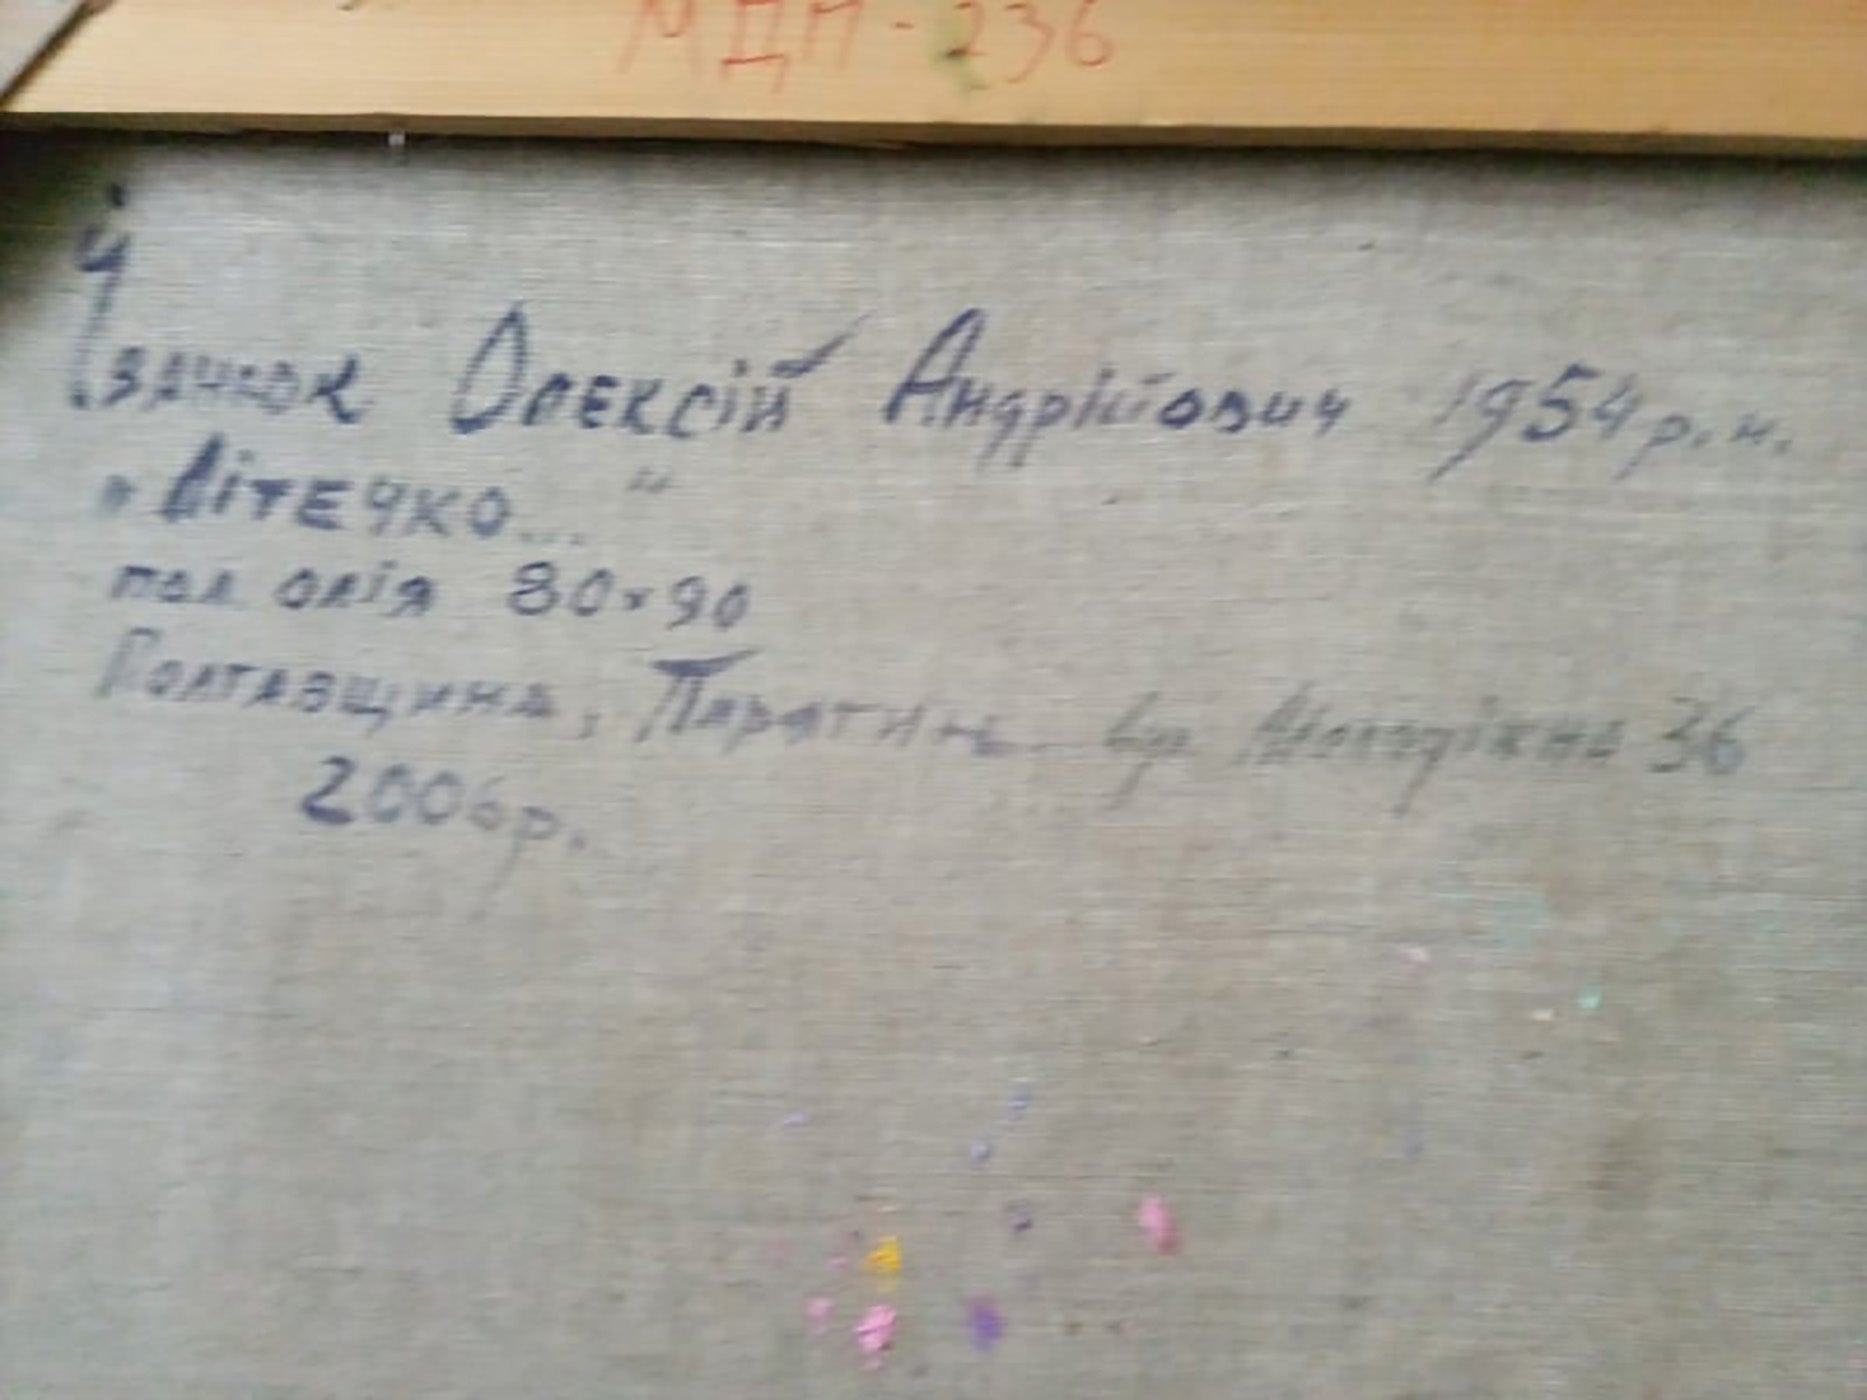 МДП-236
Ізачок Олексій Андрійович 1954 р.н.
"Літечко..."
пол олія 80×90
Полтавщина, Пирятин вул Молодіжна 36
2006р.